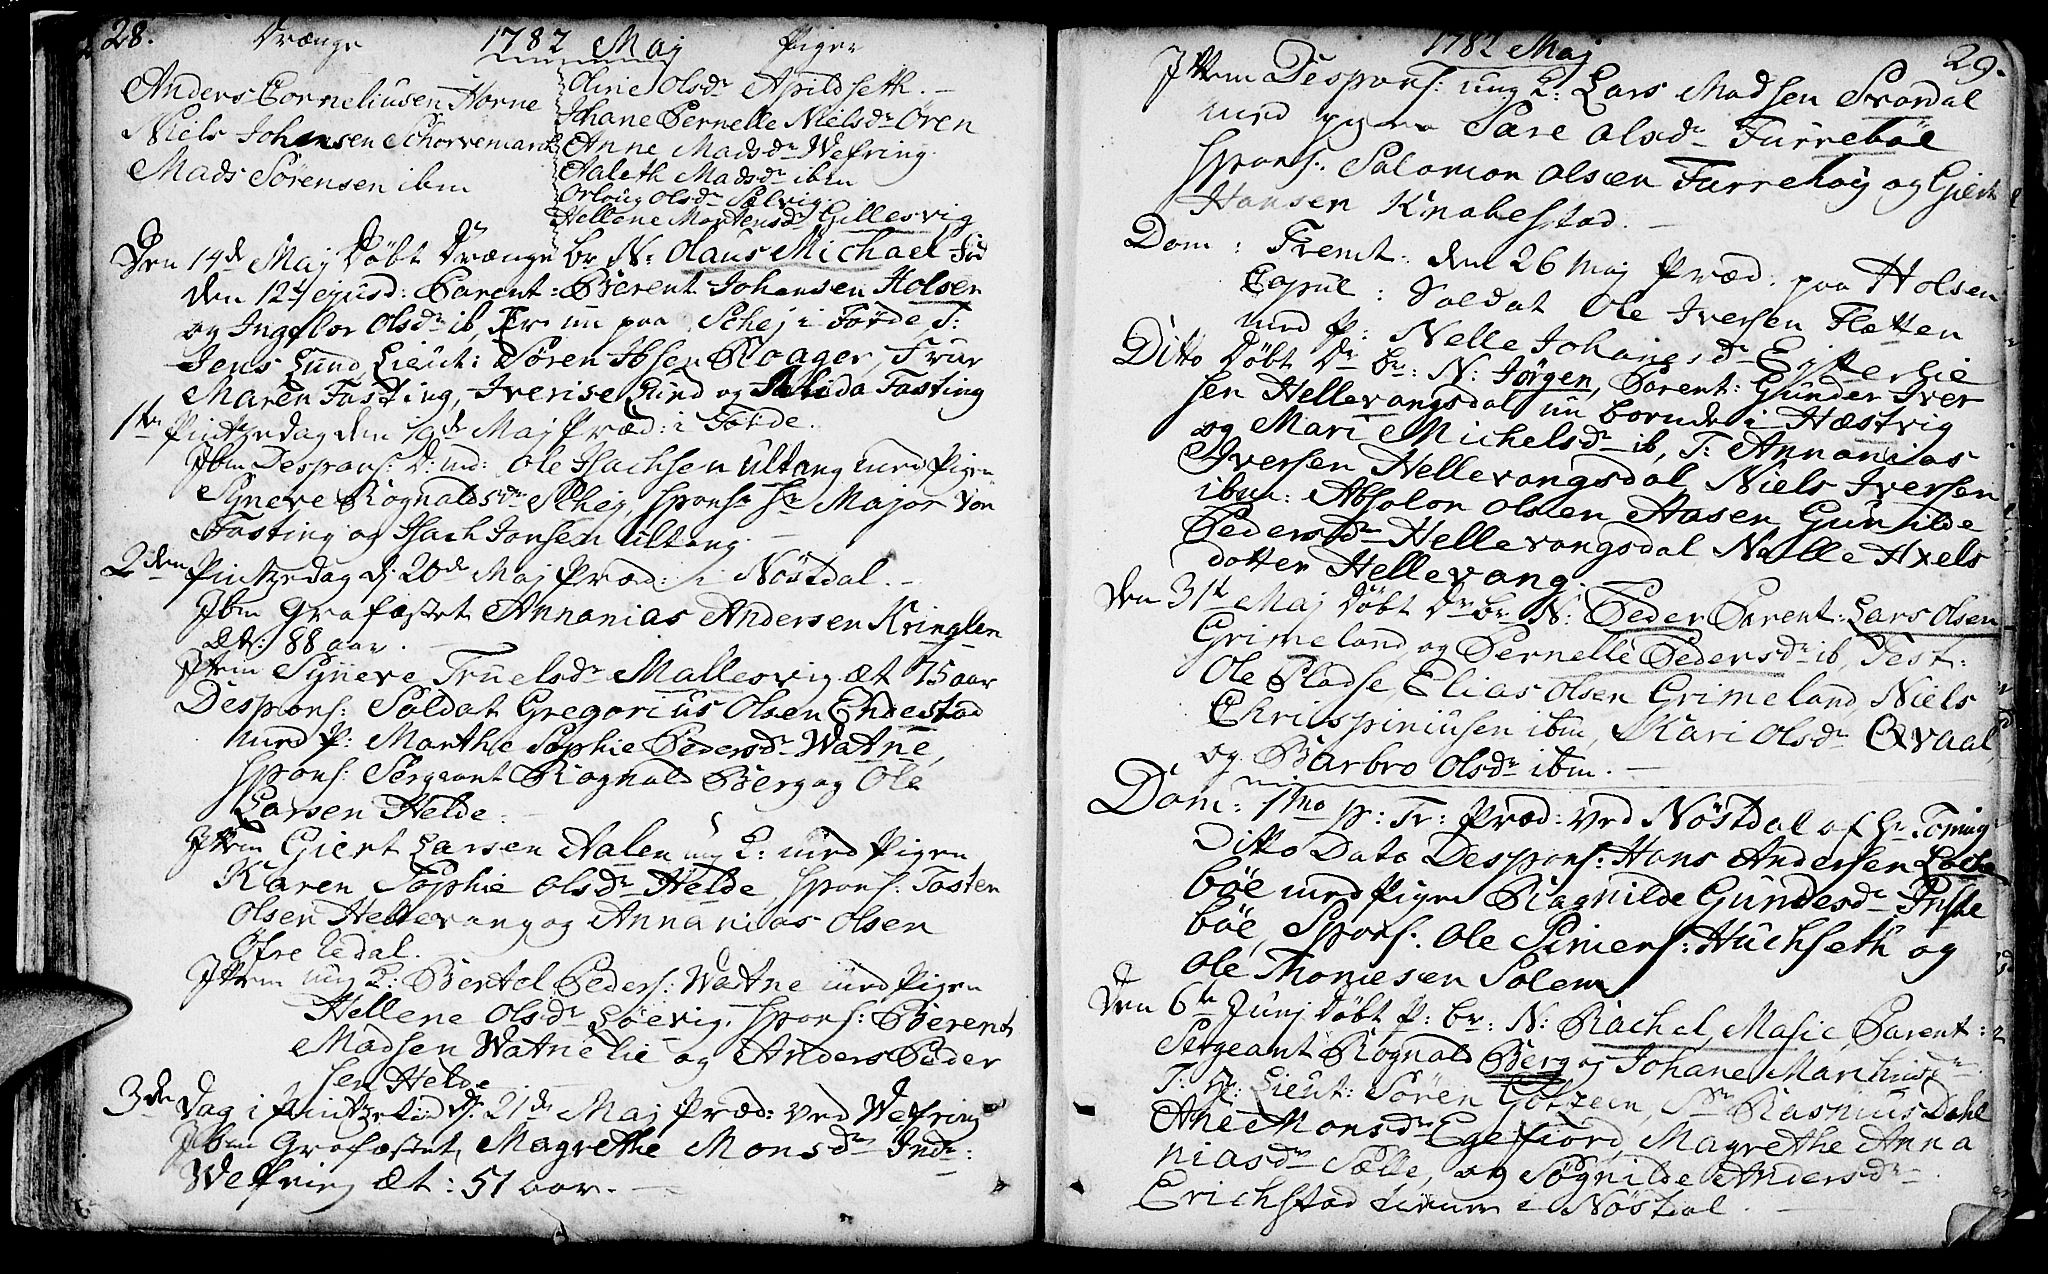 28. Drænge 1782 Maj Piger
Anders Corneliusen Horne
Niels Johansen Schorvemark
Mads Sörensen ibm
Oline Olsdr Apildseth.
Johane Pernelle Nielsdr Ören
Anne Madsdr Wefring
Maleth Madsdr ibm
Orloug Olsdr Solvig
Hellene Mortensdr Gillesvig
Den 14de Maj Döbt Drænge br. N: Olaus Michael Föd
den 12te ejusd: Parent: Berent Johansen Holsen
og Ingebor Olsdr ib, Er nu paa Schej i Förde T:
Jens Lund, Lieut: Sören Ibsen Roager, Frue
Maren Fasting, Iverise Lund og Fasting
1te Pintzedag den 19de Maj Præd: i Förde.
Ibm Despons: Ole Isachsen Ultang med Pigen
Syneve Rognaldsdr Schej, spons. Hr Major von
Fasting og Isach Jonsen Ultang.
2den Pintzedag d. 20de Maj Præd: i Nöstdal.
Ibm Grafæstet Annanias Andersen Kringlen
æt: 88 aar.
Item Syneve Truelsdr Mallesvig æt 75 aar
Despons: Soldat Gregorius Olsen Endestad
med P: Marthe Sophie Pedersdr Watne,
spons: Sergeant Rognald Berg og Ole
Larsen Helde.
Item Giert Larsen Aalen ung K: med Pigen
Karen Sophie Olsdr Helde, spons: Tosten
Olsen Hellevang og Annanias Olsen
Öfre Eedal.
Item ung K: Bertel Peders: Watne med Pigen
Hellene Olsdr Löevig, spons: Berent
Madsen Watnelie og Anders Peder
sen Helde
3de Dag i Pintzetid d: 21de Maj Præd: ved Wefring
Ibm Grafæstet, Magrethe Monsdr Indr:
Wefring æt: 51 aar.
1782 Maj 29.
Item Despons: ung K: Lars Madsen Svardal
med pigen Sare Olsdr Furreböe
spons: Salomon Olsen Furrehöy og Giert
Hansen Knabestad.
Dom: Trinit: den 26 Maj Præd: paa Holsen
Copul: Soldat Ole Iversen Flætten
med P: Nelle Johanesdr Egtterlie
Ditto Döbt Dr br: N: Jörgen, Parent: Gunder Iver
sen Hellevangsdal nu boende i Hæstvig
og Mari Michelsdr ib, T: Annanias
Iversen Hellevangsdal Niels Iversen
ibm: Absolon Olsen Aasen, Gunilde
Pedersdr Hellevangsdal Nalle Axels
dotter Hellevang.
Den 31te Maj Döbt Dr br N: Peder Parent: Lars Olsen
Grimeland og Pernelle Pedersdr ib, Test:
Ole Pladse, Elias Olsen Grimeland, Niels
Chrispiniusen ibm, Kari Olsdr Qvaal,
og Barbro Olsdr ibm.
Dom: 1mo p: Tr: Præd: ved Nöstdal af Hr Toming
Ditto Dato Despons: Hans Andersen Loche
böe med Pigen Ragnilde Gundesdr Inste
böe, Spons: Ole Simers: Huchseth og
Ole Thomesen Solem
Den 6te Junj Döbt P: br: N: Rachel Marie, Parent:
Sergeant Rognald Berg og Johane Mari
T: Hr: Lieut: Sören, Sr Rasmus Dahl
Ane Monsdr Egefjord, Magrethe Anna
niasdr Sælle, og Sögnilde Andersdr
Erichstad i Nöstdal.